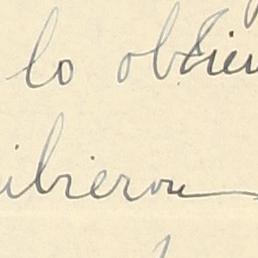 lo obtien
ibieron